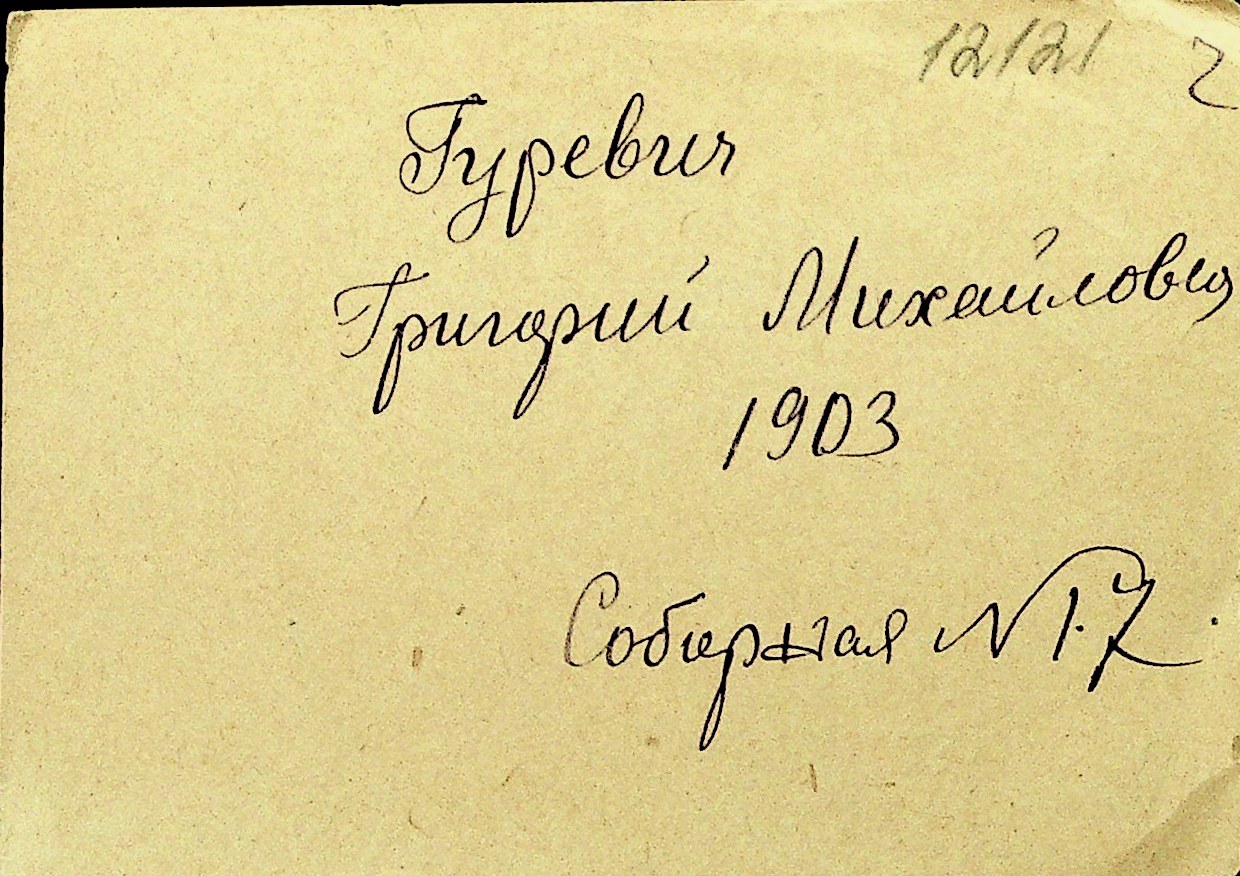 12121
2
Гуревич
Григорий Михайлович
1903
Собирная N 1.7.